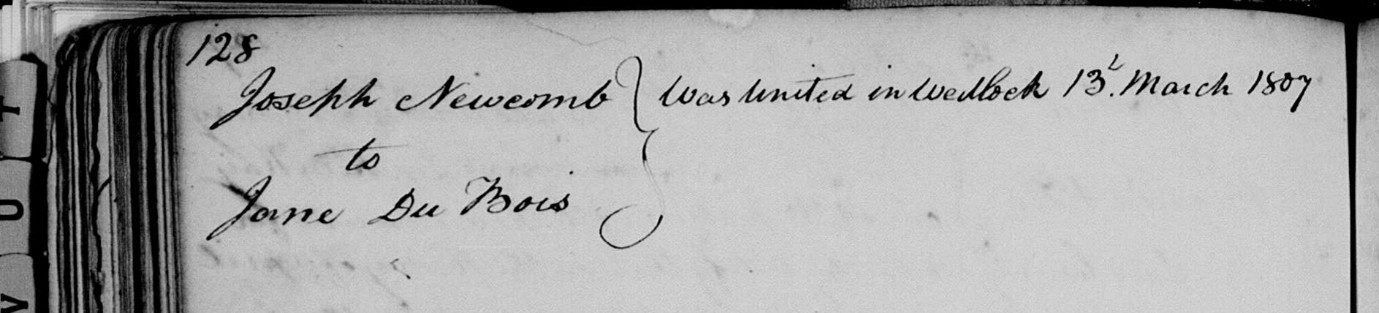 128
Joseph Newcomb } Was United in Wedlock 13t. March 1807
to
Jane Du Bois